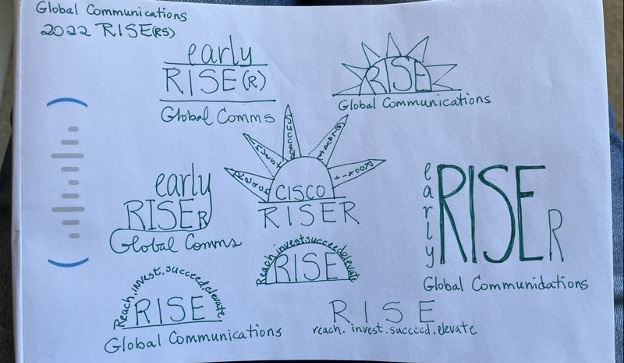 Global Communications
2022 RISE(RS)
early
RISE(R)
Global Comms
RISE
Global Communications
early
RISER
Global Comms
CISCO
RISER
early
RISER
Global Communidations
Reach.invest.succeed.elevate
RISE
Reach.invest.succeed.elevate
RISE
Global Communications
RISE
reach. invest.succeed.elevate